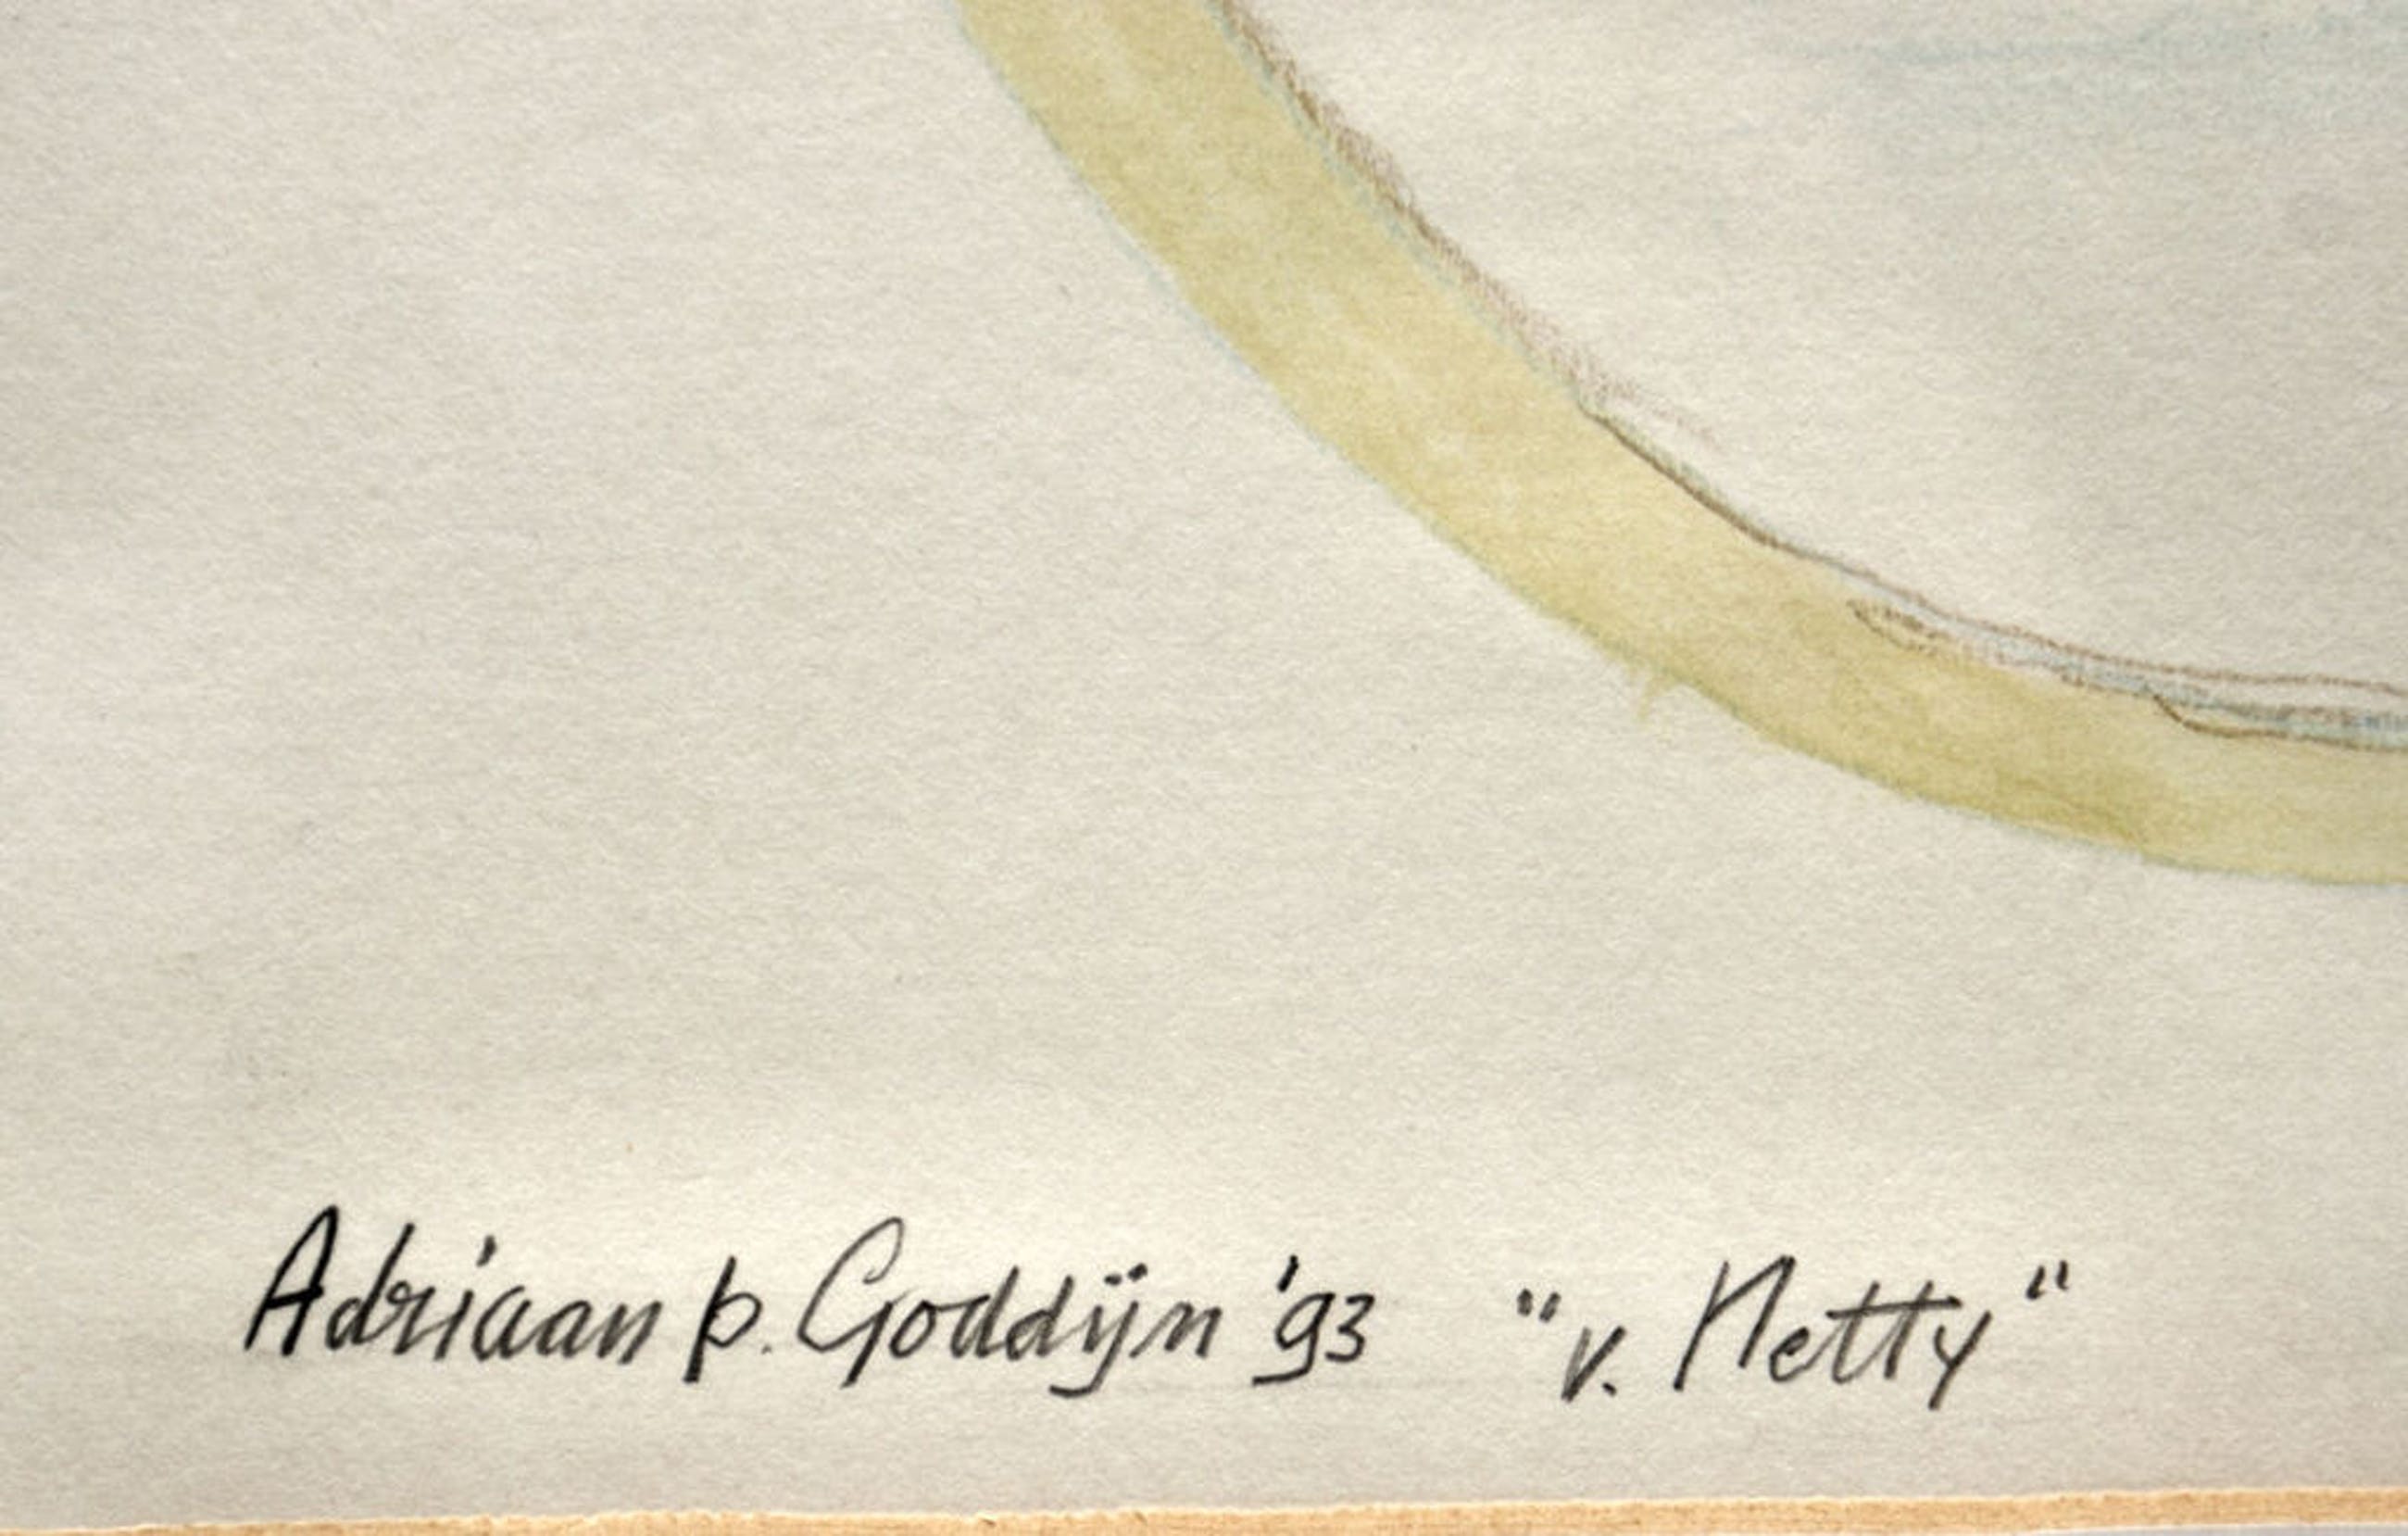 Adriaan p. Goddijn '93 "v. Netty"